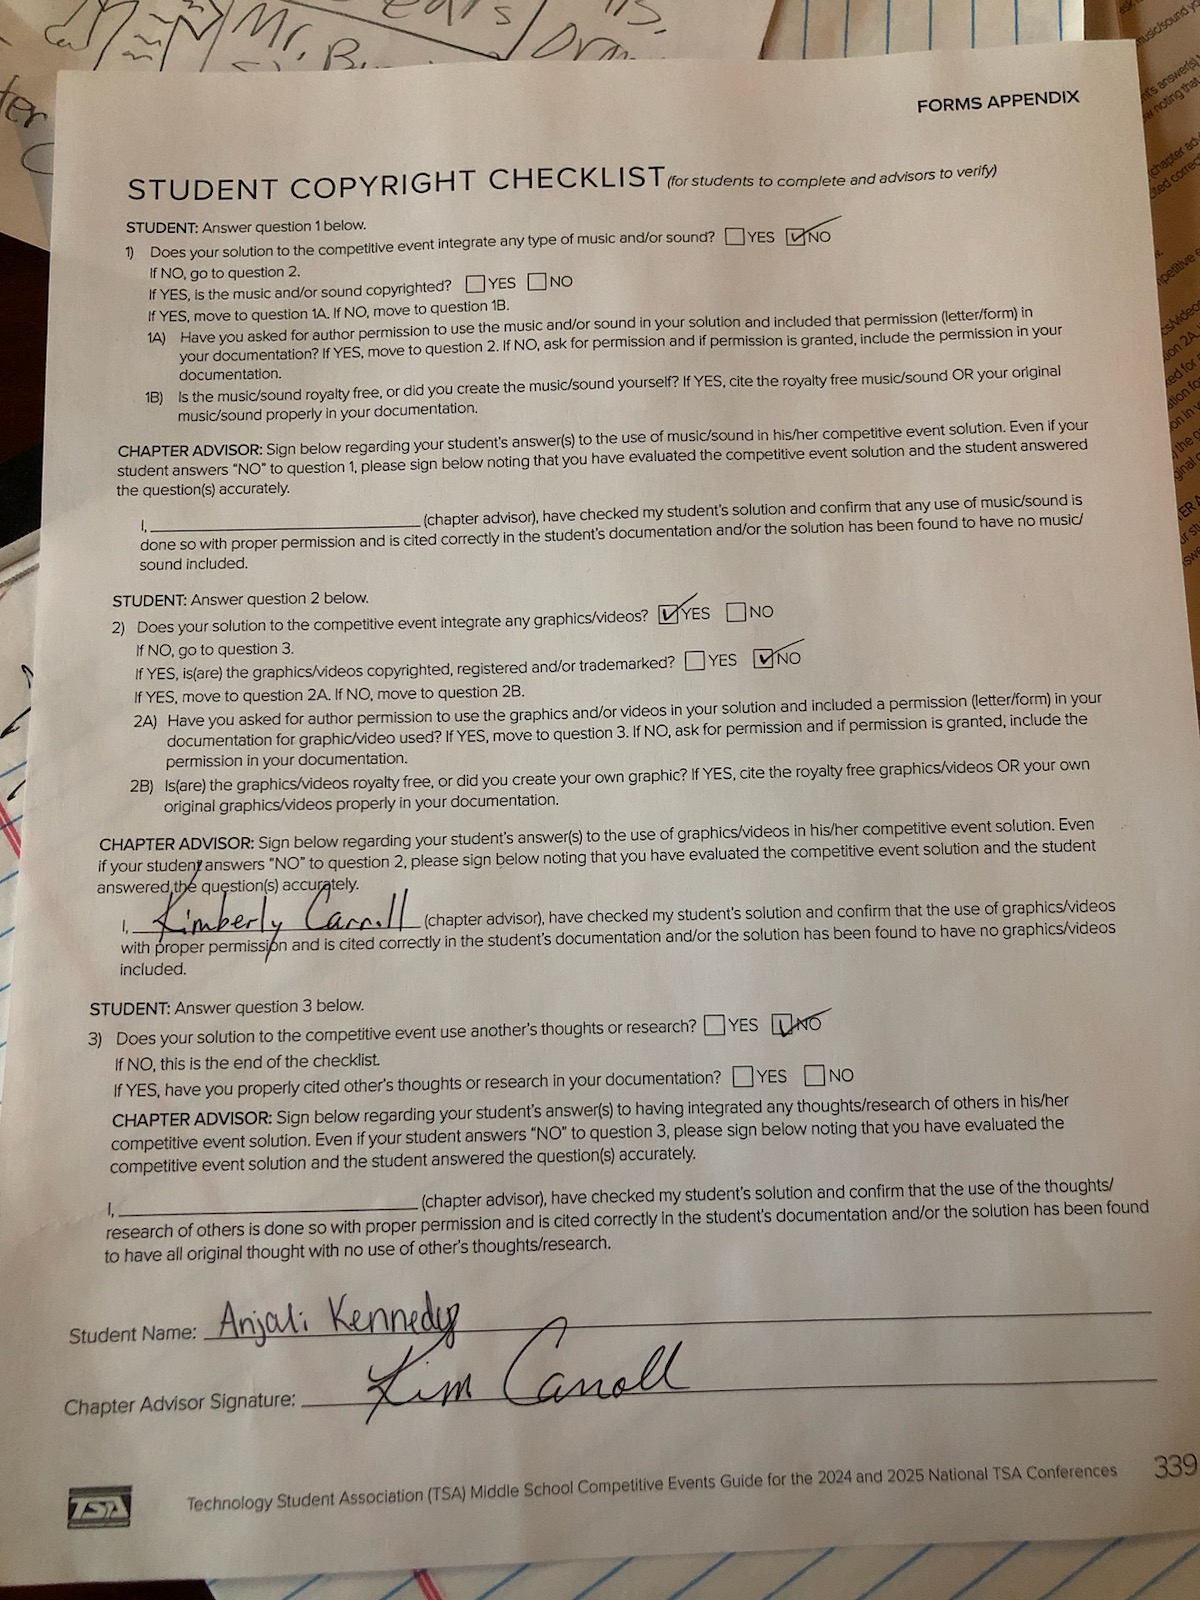 ears
Mr. B
FORMS APPENDIX
STUDENT COPYRIGHT CHECKLIST (for students to complete and advisors to verify)
STUDENT: Answer question 1 below.
1) Does your solution to the competitive event integrate any type of music and/or sound? YES NO
If NO, go to question 2.
If YES, is the music and/or sound copyrighted? YES NO
If YES, move to question 1A. If NO, move to question 1B.
1A) Have you asked for author permission to use the music and/or sound in your solution and included that permission (letter/form) in
your documentation? If YES, move to question 2. If NO, ask for permission and if permission is granted, include the permission in your
documentation.
1B) Is the music/sound royalty free, or did you create the music/sound yourself? If YES, cite the royalty free music/sound OR your original
music/sound properly in your documentation.
CHAPTER ADVISOR: Sign below regarding your student's answer(s) to the use of music/sound in his/her competitive event solution. Even if your
student answers "NO" to question 1, please sign below noting that you have evaluated the competitive event solution and the student answered
the question(s) accurately.
I, (chapter advisor), have checked my student's solution and confirm that any use of music/sound is
done so with proper permission and is cited correctly in the student's documentation and/or the solution has been found to have no music/
sound included.
STUDENT: Answer question 2 below.
2) Does your solution to the competitive event integrate any graphics/videos? YES NO
If NO, go to question 3.
If YES, is(are) the graphics/videos copyrighted, registered and/or trademarked? YES NO
If YES, move to question 2A. If NO, move to question 2B.
2A) Have you asked for author permission to use the graphics and/or videos in your solution and included a permission (letter/form) in your
documentation for graphic/video used? If YES, move to question 3. If NO, ask for permission and if permission is granted, include the
permission in your documentation.
2B) Is(are) the graphics/videos royalty free, or did you create your own graphic? If YES, cite the royalty free graphics/videos OR your own
original graphics/videos properly in your documentation.
CHAPTER ADVISOR: Sign below regarding your student's answer(s) to the use of graphics/videos in his/her competitive event solution. Even
if your student answers "NO" to question 2, please sign below noting that you have evaluated the competitive event solution and the student
answered the question(s) accurately.
I, Kimberly Carroll (chapter advisor), have checked my student's solution and confirm that the use of graphics/videos
with proper permission and is cited correctly in the student's documentation and/or the solution has been found to have no graphics/videos
included.
STUDENT: Answer question 3 below.
3) Does your solution to the competitive event use another's thoughts or research? YES NO
If NO, this is the end of the checklist.
If YES, have you properly cited other's thoughts or research in your documentation? YES NO
CHAPTER ADVISOR: Sign below regarding your student's answer(s) to having integrated any thoughts/research of others in his/her
competitive event solution. Even if your student answers "NO" to question 3, please sign below noting that you have evaluated the
competitive event solution and the student answered the question(s) accurately.
I, (chapter advisor), have checked my student's solution and confirm that the use of the thoughts/
research of others is done so with proper permission and is cited correctly in the student's documentation and/or the solution has been found
to have all original thought with no use of other's thoughts/research.
Student Name: Anjali Kennedy
Chapter Advisor Signature: Kim Carroll
TSA
Technology Student Association (TSA) Middle School Competitive Events Guide for the 2024 and 2025 National TSA Conferences 339